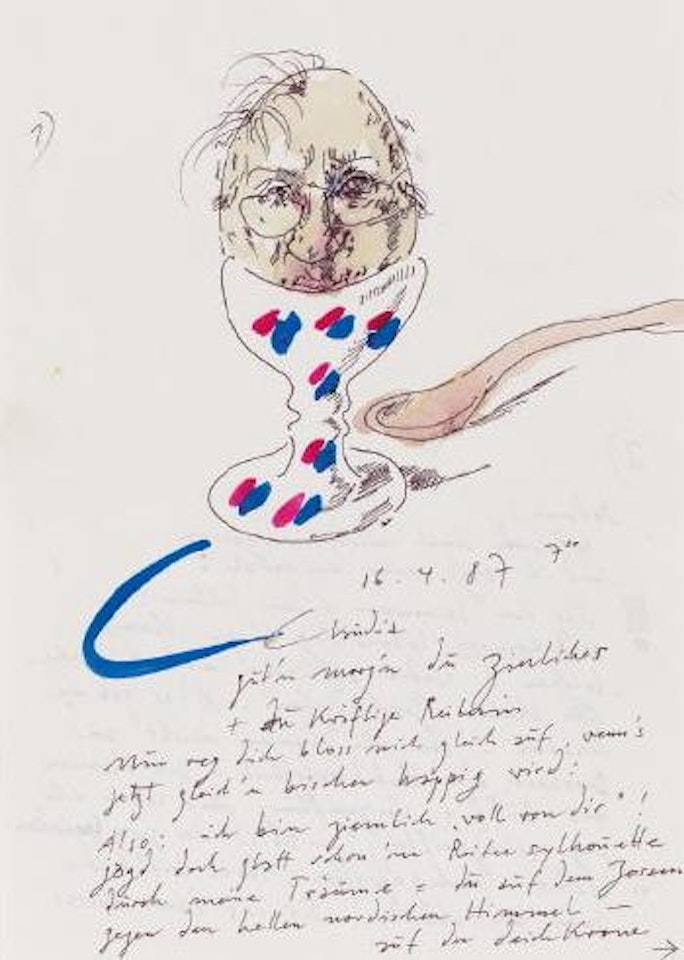 1)
16.4.87 7⁰⁰
Claudia
gut'n morg'n du zierliches
+ du kräftige Reiterin
Nun reg dich bloss nich gleich auf, wenn's
jetzt gleich'n bischen happig wird:
Also: ich bin ziemlich "voll von dir"!
jagd doch glatt schon 'ne Reiter sylhouette
durch meine Träume = du auf dem Zossen
gegen den hellen nordischen Himmel –
auf der deichKrone
→